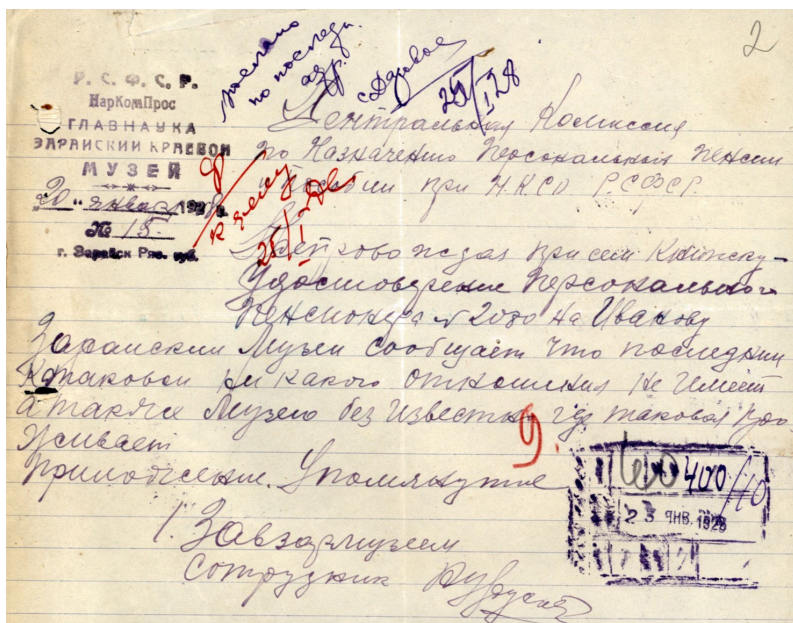 2
Р. С. Ф. С. Р.
НарКомПрос
ГЛАВНАУКА
ЗАРАЙСКИЙ КРАЕВОЙ
МУЗЕЙ
"20" января 1928 г.
№ 15.
г. Зарайск Ряз. губ.
послано
по последн.
адр.
25/I 28
К делу
25/I 28
Центральная Комиссия
по Назначению Персональной Пенсии
и пособий при Н.К.СО Р.С.Ф.С.Р.
при сем Книжку-
Удостоверение Персонального
Пенсионера № 2080 на Иванову
Зарайский Музей сообщает что последний
к таковой ни какого отношения не имеет
а также Музею без известно где таковая про
живает
Приложение. Упомянутое
9.
400/10
23 ЯНВ. 1928
Завзармузеем
Сотрудник